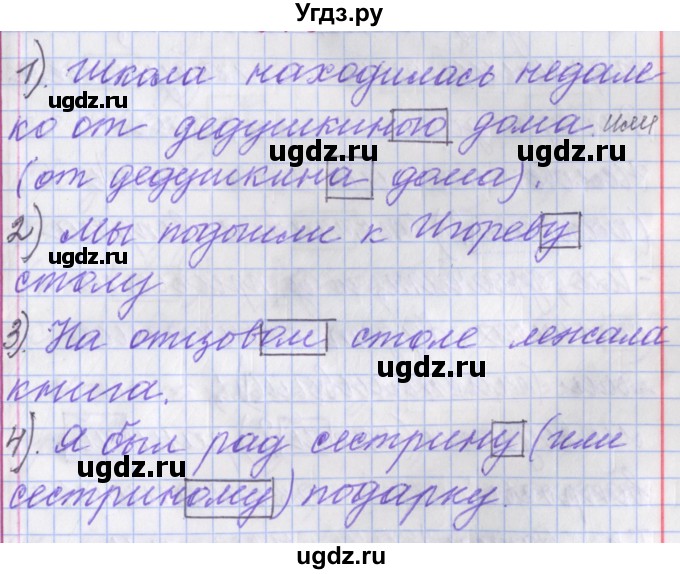 Угдз.ру
1). Школа находилась недале-
ugdz.ru
ко от дедушкиного дома. или
ugdz.ru ugdz.ru
(от дедушкина дома).
2) Мы подошли к Игореву
ugdz.ru
столу
3). На отцовом столе лежала
ugdz.ru
книга.
4). Я был рад сестрину (или
ugdz.ru
сестриному) подарку.
ugdz.ru
ugdz.ru